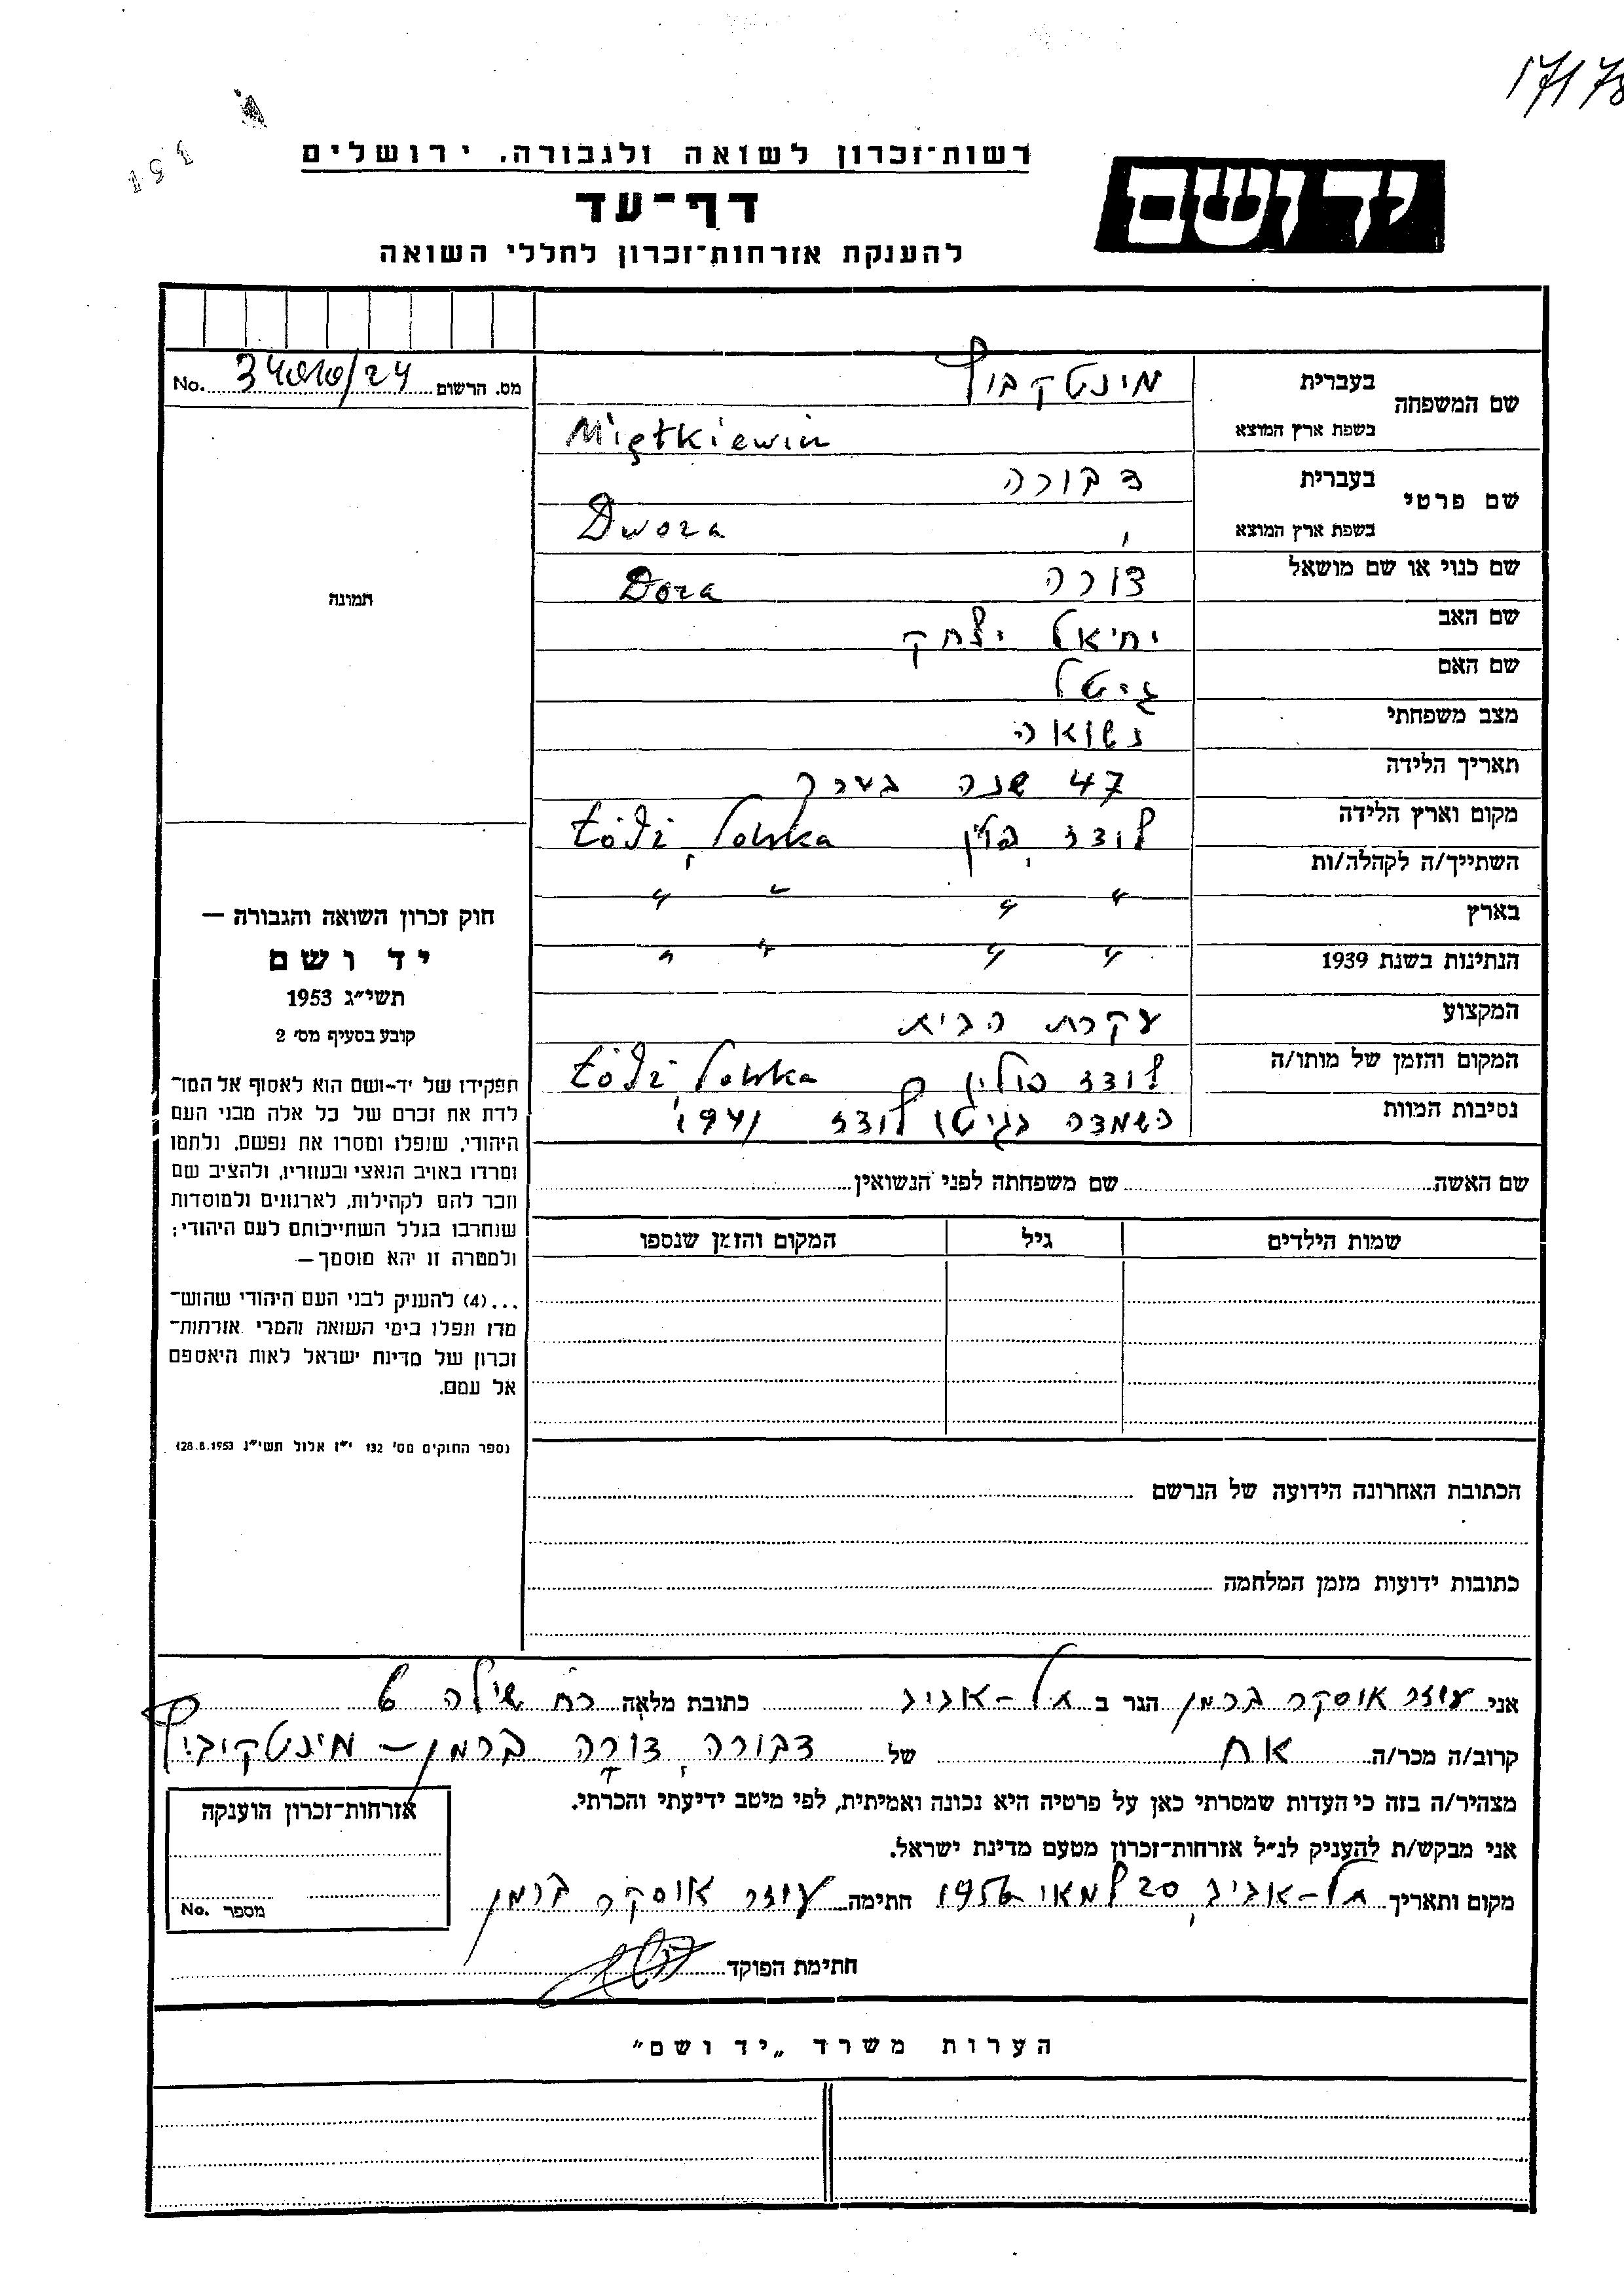 17178
רשות־זכרון לשואה ולגבורה, ירושלים
יד ושם
דף־עד
להענקת אזרחות־זכרון לחללי השואה
No. 34010/24 מס. הרשום
שם המשפחה בעברית
בשפת ארץ המוצא Miętkiewin
שם פרטי בעברית דבורה
בשפת ארץ המוצא Dwora
שם כנוי או שם מושאל דורה Dora
שם האב יחיאל יצחק
שם האם גיטל
מצב משפחתי נשואה
תאריך הלידה 47 שנה בערך
מקום וארץ הלידה לודז, פולין Łódź, Polska
השתייך/ה לקהלה/ות " " " "
בארץ " " " "
הנתינות בשנת 1939
המקצוע עקרת הבית
המקום והזמן של מותו/ה לודז פולין Łódź, Polska
נסיבות המוות השמדה בגיטו לודז 1941
שם האשה שם משפחתה לפני הנשואין
שמות הילדים גיל המקום והזמן שנספו
הכתובת האחרונה הידועה של הנרשם
כתובות ידועות מזמן המלחמה
תמונה
חוק זכרון השואה והגבורה —
יד ושם
תשי״ג 1953
קובע בסעיף מס׳ 2
תפקידו של יד-ושם הוא לאסוף אל המו־
לדת את זכרם של כל אלה מבני העם
היהודי, שנפלו ומסרו את נפשם, נלחמו
ומרדו באויב הנאצי ובעוזריו, ולהציב שם
וזכר להם לקהילות, לארגונים ולמוסדות
שנחרבו בגלל השתייכותם לעם היהודי;
ולמטרה זו יהא מוסמך—
...(4) להעניק לבני העם היהודי שהוש־
מדו ונפלו בימי השואה והמרי אזרחות־
זכרון של מדינת ישראל לאות היאספם
אל עמם.
(ספר החוקים מס׳ 132 י״ז אלול תשי״ג 28.8.1953)
אני עוזר אוסקר ברמן הגר ב תל-אביב כתובת מלאה רח שילה 6
קרוב/ה מכר/ה אח של דבורה, דורה ברמן – מינטקיביץ
מצהיר/ה בזה כי העדות שמסרתי כאן על פרטיה היא נכונה ואמיתית, לפי מיטב ידיעתי והכרתי.
אני מבקש/ת להעניק לנ״ל אזרחות־זכרון מטעם מדינת ישראל.
מקום ותאריך תל-אביב, 20 למאי 1956 חתימה עוזר אוסקר ברמן
חתימת הפוקד
אזרחות־זכרון הוענקה
No. מספר
הערות משרד „יד ושם״